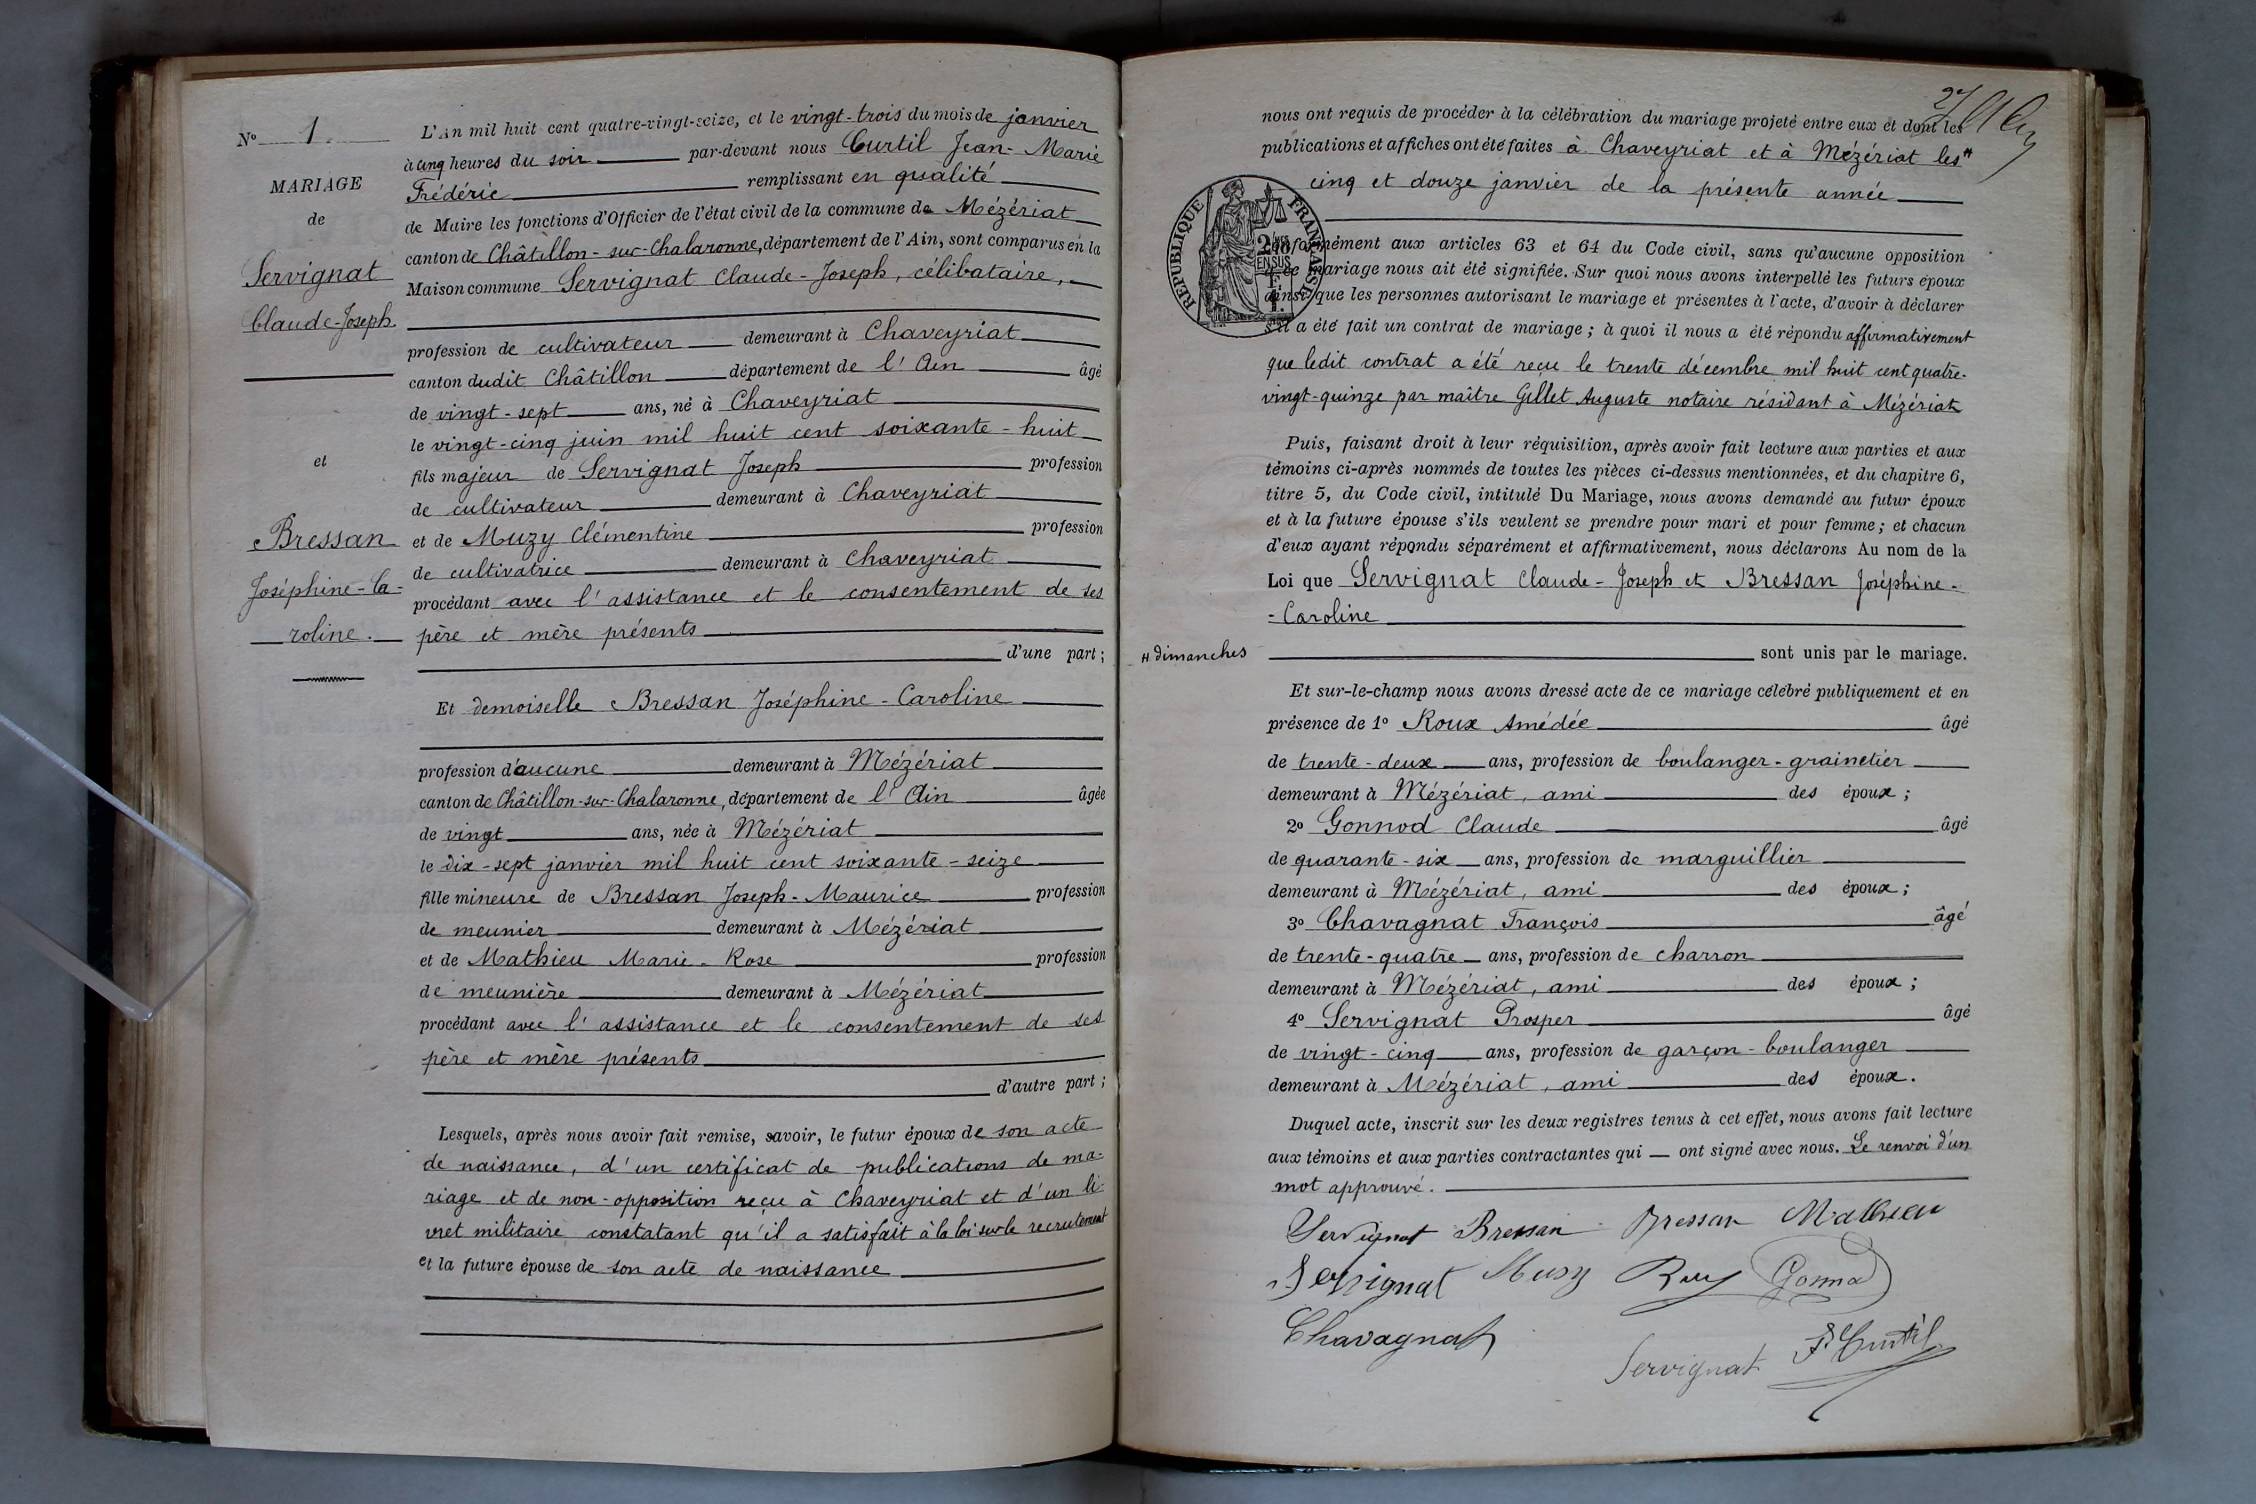 N° 1.
MARIAGE
de
Servignat
Claude-Joseph.
et
Bressan
Joséphine-Ca-
roline.
L'An mil huit cent quatre-vingt-seize, et le vingt-trois du mois de janvier
à cinq heures du soir par-devant nous Curtil Jean-Marie
Frédéric remplissant en qualité
de Maire les fonctions d'Officier de l'état civil de la commune de Mézériat
canton de Châtillon-sur-Chalaronne, département de l'Ain, sont comparus en la
Maison commune Servignat Claude-Joseph, célibataire,
profession de cultivateur demeurant à Chaveyriat
canton dudit Châtillon département de l'Ain âgé
de vingt-sept ans, né à Chaveyriat
le vingt-cinq juin mil huit cent soixante-huit
fils majeur de Servignat Joseph profession
de cultivateur demeurant à Chaveyriat
et de Muzy Clémentine profession
de cultivatrice demeurant à Chaveyriat
procédant avec l'assistance et le consentement de ses
père et mère présents
d'une part;
Et demoiselle Bressan Joséphine-Caroline
profession d'aucune demeurant à Mézériat
canton de Châtillon-sur-Chalaronne, département de l'Ain âgée
de vingt ans, née à Mézériat
le dix-sept janvier mil huit cent soixante-seize
fille mineure de Bressan Joseph-Maurice profession
de meunier demeurant à Mézériat
et de Mathieu Marie-Rose profession
de meunière demeurant à Mézériat
procédant avec l'assistance et le consentement de ses
père et mère présents
d'autre part;
Lesquels, après nous avoir fait remise, savoir, le futur époux de son acte
de naissance, d'un certificat de publications de ma-
riage et de non-opposition reçu à Chaveyriat et d'un li-
vret militaire constatant qu'il a satisfait à la loi sur le recrutement
et la future épouse de son acte de naissance
27
nous ont requis de procéder à la célébration du mariage projeté entre eux et dont les
publications et affiches ont été faites à Chaveyriat et à Mézériat les #
cinq et douze janvier de la présente année
RÉPUBLIQUE FRANÇAISE
conformément aux articles 63 et 64 du Code civil, sans qu'aucune opposition
à ce mariage nous ait été signifiée. Sur quoi nous avons interpellé les futurs époux
ainsi que les personnes autorisant le mariage et présentes à l'acte, d'avoir à déclarer
s'il a été fait un contrat de mariage; à quoi il nous a été répondu affirmativement
que ledit contrat a été reçu le trente décembre mil huit cent quatre-
vingt-quinze par maître Gillet Auguste notaire résidant à Mézériat
Puis, faisant droit à leur réquisition, après avoir fait lecture aux parties et aux
témoins ci-après nommés de toutes les pièces ci-dessus mentionnées, et du chapitre 6,
titre 5, du Code civil, intitulé Du Mariage, nous avons demandé au futur époux
et à la future épouse s'ils veulent se prendre pour mari et pour femme; et chacun
d'eux ayant répondu séparément et affirmativement, nous déclarons Au nom de la
Loi que Servignat Claude-Joseph et Bressan Joséphine-
-Caroline
# dimanches
sont unis par le mariage.
Et sur-le-champ nous avons dressé acte de ce mariage célébré publiquement et en
présence de 1° Roux Amédée âgé
de trente-deux ans, profession de boulanger-grainetier
demeurant à Mézériat, ami des époux;
2° Gonnod Claude âgé
de quarante-six ans, profession de marguillier
demeurant à Mézériat, ami des époux;
3° Chavagnat François âgé
de trente-quatre ans, profession de charron
demeurant à Mézériat, ami des époux;
4° Servignat Prosper âgé
de vingt-cinq ans, profession de garçon-boulanger
demeurant à Mézériat, ami des époux.
Duquel acte, inscrit sur les deux registres tenus à cet effet, nous avons fait lecture
aux témoins et aux parties contractantes qui ont signé avec nous. Le renvoi d'un
mot approuvé.
Servignat Bressan Bressan Mathieu
Servignat Muzy Roux Gonnod
Chavagnat
Servignat F. Curtil